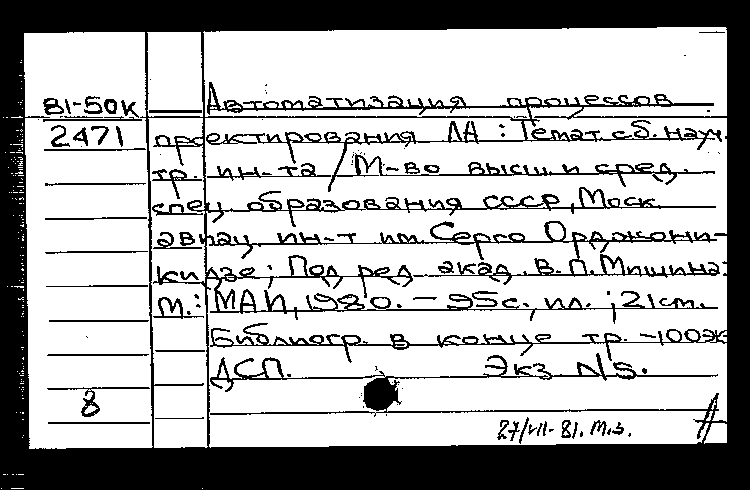 81-50к
2471
Автоматизация процессов
проектирования ЛА : Темат. сб. науч.
тр. ин-та / М-во высш. и сред.
спец. образования СССР, Моск.
авиац. ин-т им. Серго Орджони-
кидзе; Под ред. акад. В.П. Мишина.
М.: МАИ, 1980. - 95с., ил. ; 21см.
Библиогр. в конце тр. -100эк
ДСП. Экз N5.
8
27/VII-81. М.з.